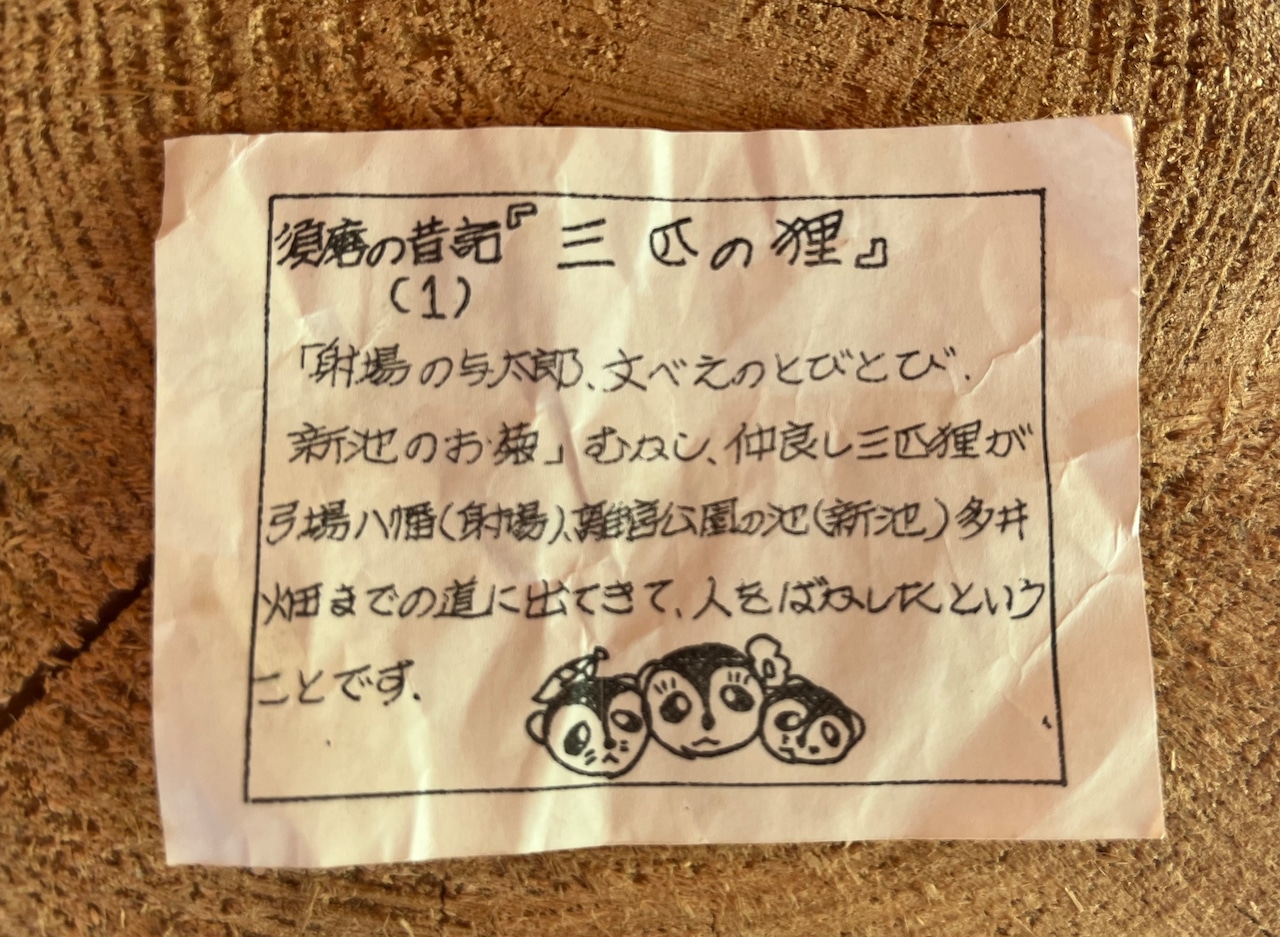 須磨の昔話『三匹の狸』
(1)
「射場の与太郎、文べえのとびとび、
新池のお菊」むかし、仲良し三匹狸が
弓場八幡(射場)、離宮公園の池(新池)多井
畑までの道に出てきて、人をばかしたという
ことです.